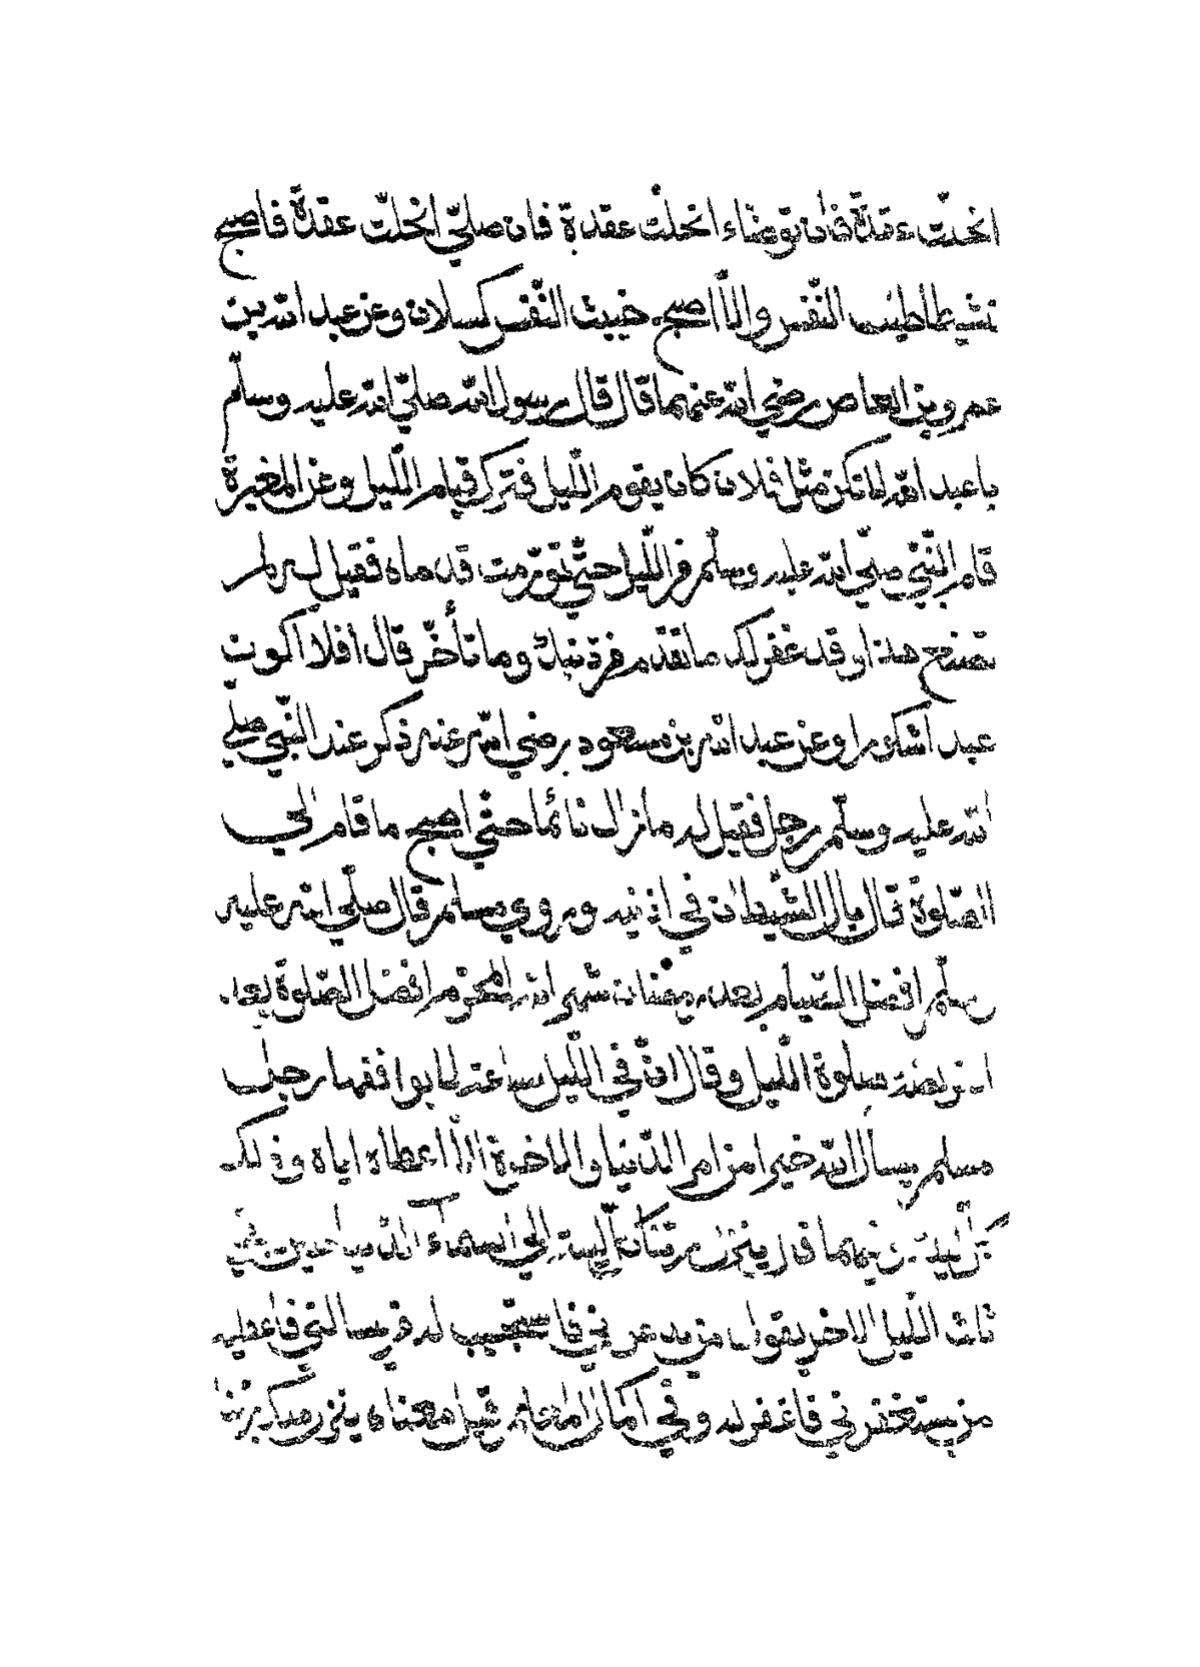 انحلّت عقدة فان توضّاء انحلت عقدة فان صلّي انحلّت عقدة فاصبح
نشيطا طيّب النّفس والّا اصبح خبيث النّفس كسلان وعن عبد الله بن
عمرو بن العاص رضي الله عنهما قال قال رسول الله صلّي الله عليه وسلّم
يا عبد الله لا تكن مثل فلان كان يقوم اللّيل فترك قيام اللّيل وعن المغيرة
قام النّبيّ صلّي الله عليه وسلّم من اللّيل حتّي تورّمت قدماه فقيل له لم
تصنع هذا وقد غفر لك ما تقدّم من ذنبك وما تأخّر قال افلا اكون
عبدا شكورا وعن عبد الله بن مسعود رضي الله عنه ذكر عند النّبي صلّي
الله عليه وسلّم رجل فقيل له ما زال نائما حتّي اصبح ما قام الي
الصّلوة قال بال الشّيطان في اذنيه وروي مسلم قال صلّي الله عليه
وسلّم افضل الصّيام بعد رمضان شهر الله المحرّم وافضل الصّلوة بعد
الفريضة صلوة اللّيل وقال انّ في اللّيل ساعة لا يوافقها رجل
مسلم يسأل الله خيرا من امر الدّنيا والاخرة الّا اعطاه اياه وذلك
كلّ ليلة فيهما قال ينزل ربّنا كلّ ليلة الي السّمآء الدّنيا حين يبقي
ثلث اللّيل الاخر يقول من يدعوني فاستجيب له من يسألني فاعطيه
من يستغفرني فاغفر له وفي اكمال المعلم قيل معناه ينزل ملك ربّنا